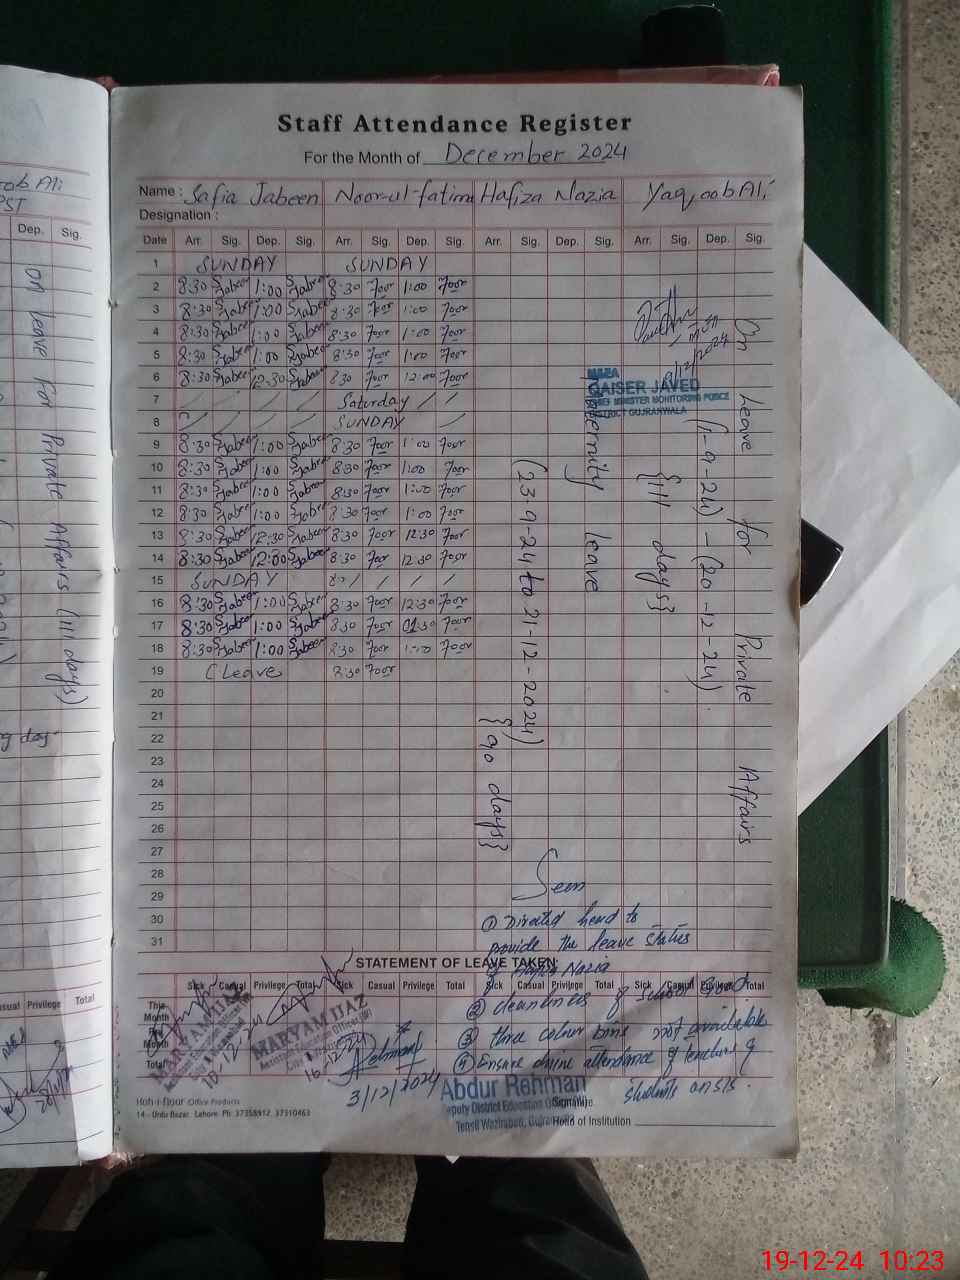 Staff Attendance Register
For the Month of December 2024
Name : Safia Jabeen Noor-ul-fatima Hafiza Nazia Yaqoob Ali
Designation :
Date Arr. Sig. Dep. Sig. Arr. Sig. Dep. Sig. Arr. Sig. Dep. Sig. Arr. Sig. Dep. Sig.
1 SUNDAY SUNDAY
2 8:30 SJabeen 1:00 SJabeen 8:30 Noor 1:00 Noor
3 8:30 SJabeen 1:00 SJabeen 8:30 Noor 1:00 Noor
4 8:30 SJabeen 1:00 SJabeen 8:30 Noor 1:00 Noor
5 8:30 SJabeen 1:00 SJabeen 8:30 Noor 1:00 Noor
6 8:30 SJabeen 12:30 SJabeen 8:30 Noor 12:00 Noor
7 Saturday
8 SUNDAY
9 8:30 SJabeen 1:00 SJabeen 8:30 Noor 1:00 Noor
10 8:30 SJabeen 1:00 SJabeen 8:30 Noor 1:00 Noor
11 8:30 SJabeen 1:00 SJabeen 8:30 Noor 1:00 Noor
12 8:30 SJabeen 1:00 SJabeen 8:30 Noor 1:00 Noor
13 8:30 SJabeen 12:30 SJabeen 8:30 Noor 12:30 Noor
14 8:30 SJabeen 12:00 SJabeen 8:30 Noor 12:30 Noor
15 SUNDAY
16 8:30 SJabeen 1:00 SJabeen 8:30 Noor 12:30 Noor
17 8:30 SJabeen 1:00 SJabeen 8:30 Noor 01:30 Noor
18 8:30 SJabeen 1:00 SJabeen 8:30 Noor 1:00 Noor
19 C Leave 8:30 Noor
20
21
22
23
24
25
26
27
28
29
30
31
Maternity leave
(23-9-24 to 21-12-2024)
{90 days}
On Leave for Private Affairs
(1-9-24) - (20-12-24)
{111 days}
MEA
QAISER JAVED
CHIEF MINISTER MONITORING FORCE
DISTRICT GUJRANWALA
Seen
① Directed head to
provide the leave status
of Hafiza Nazia
② cleanliness of school good
③ three colour bins not available
④ Ensure online attendance of teachers &
students on sis.
STATEMENT OF LEAVE TAKEN:
Sick Casual Privilege Total Sick Casual Privilege Total Sick Casual Privilege Total Sick Casual Privilege Total
This Month
Month
Total
MARYAM IJAZ
10-12-24
MARYAM IJAZ
Assistant Education Officer
16-12-24
3/12/2024
Abdur Rehman
Deputy District Education Officer
Tehsil Wazirabad, Gujranwala
Head of Institution
Koh-i-Noor Office Products
14 - Urdu Bazar, Lahore. Ph: 37358912, 37310463
Yaqoob Ali
PST
Dep. Sig.
on leave for Private Affairs (111 days)
Casual Privilege Total
19-12-24 10:23